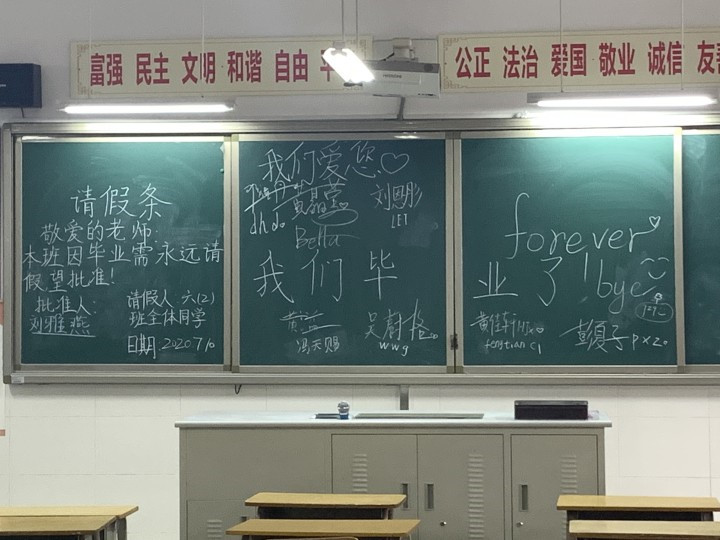 富强 民主 文明·和谐 自由
公正 法治 爱国·敬业 诚信 友善
请假条
敬爱的老师:
本班因毕业需永远请
假望批准!
批准人:
刘雅燕
请假人:六(2)
班全体同学
日期:2020.7/10
我们爱您♡
黄晶莹
刘恩彤
dhdo
Bella
我们毕
冯天赐
吴蔚格
wwg
forever♡
业了!bye
fengtianci
彭夏子pxzo